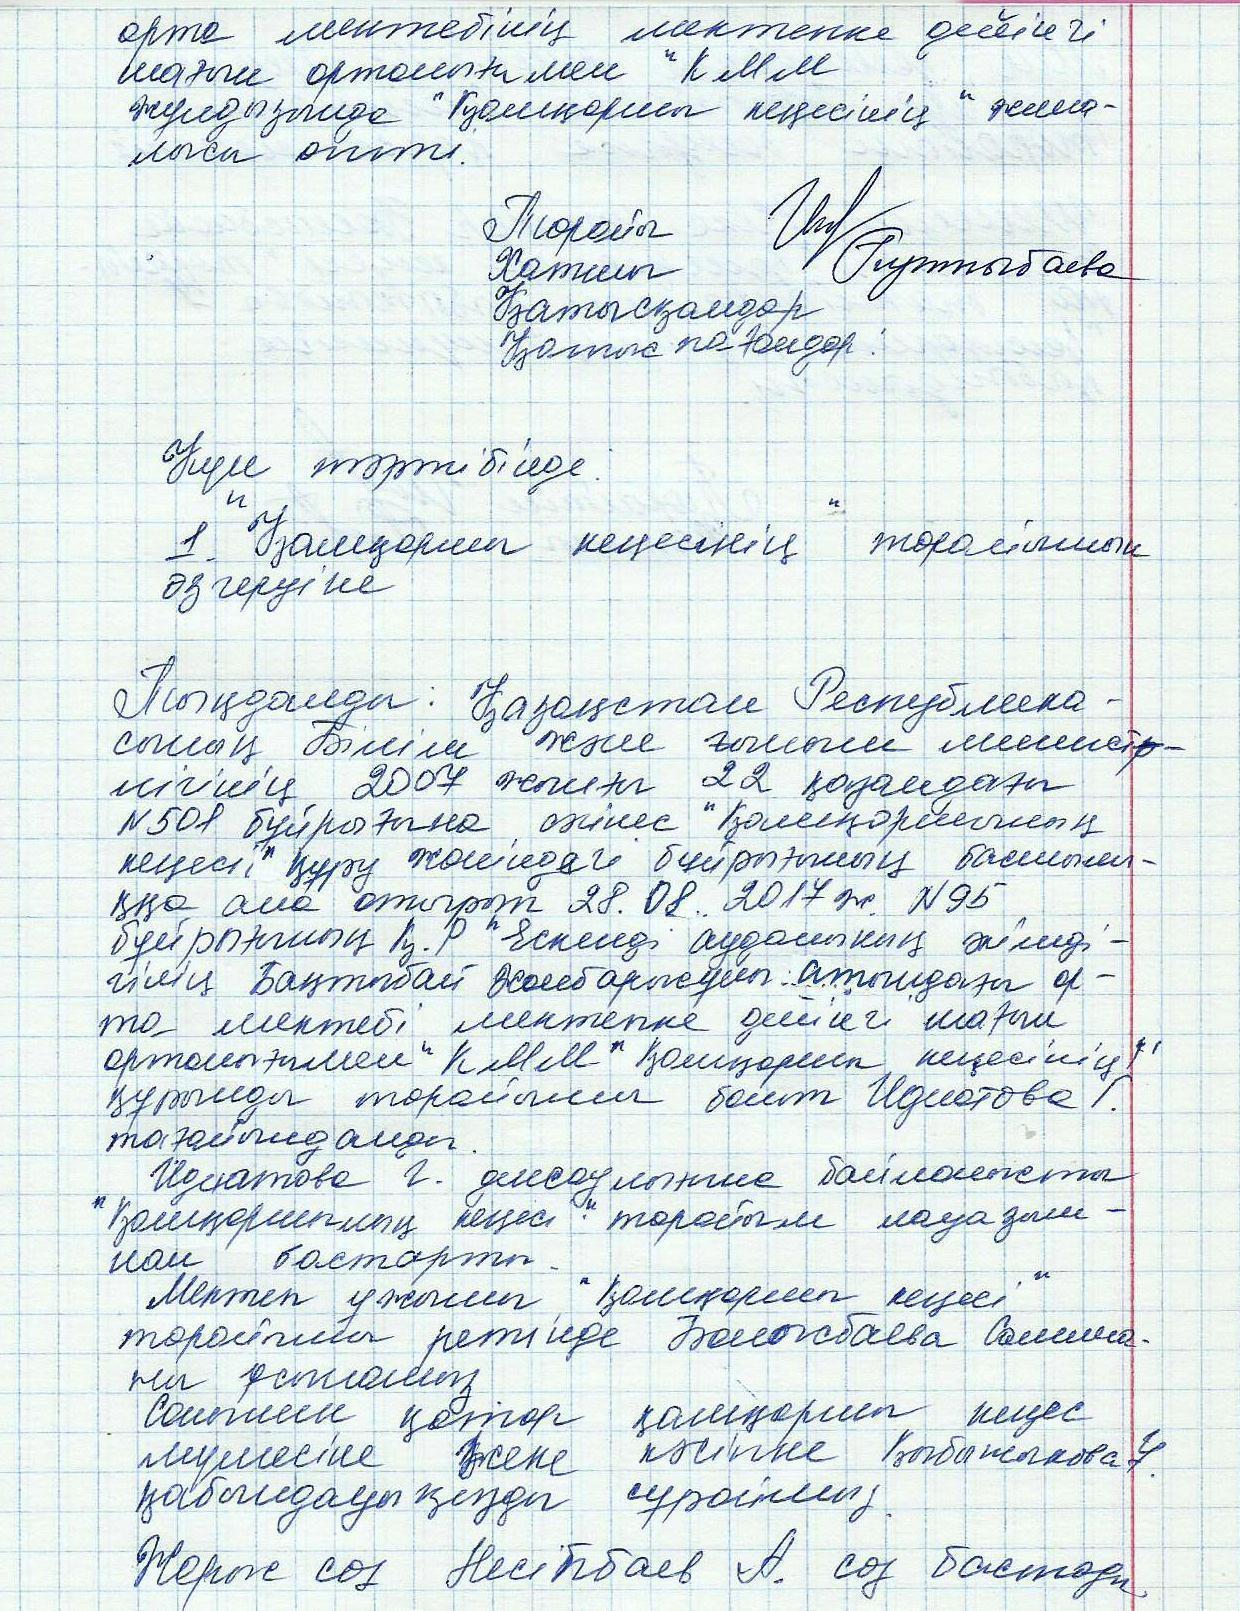 орта мектебінің мектепке дейінгі
шағын орталығымен "КММ
жулдызында "Қамқоршы кеңесінің" жина-
лысы өтті.
Төрайы
Хатшы
Қатысқандар
Қатыспағандар:
Күн тәртібінде:
1. "Қамқоршы кеңесінің" торайымын
өзгеруіне
Тыңдалды: Қазақстан Республика-
сының Білім және ғылым министр-
лігінің 2007 жылғы 22 қазандағы
N501 бұйрығына сәйкес "Қамқоршының
кеңесі" құру жөніндегі бұйрығының басшылы-
ққа ала отырып 28.08.2017 ж. N95
бұйрығының Қ.Р "Ескелді ауданының әкімді-
гінің Бақтыбай Жолбарысұлы атындағы ор-
та мектебі мектепке дейінгі шағын
орталығымен" КММ "Қамқоршы кеңесінің"
құрамды торайымы болып Идиятова Г.
тағайындалды.
Идиятова Г. денсаулығына байланысты
"Қамқоршының кеңесі" торайым лауазым-
нан бастарты.
Мектеп ұжымы "Қамқоршы кеңесі"
торайымы ретінде Болысбаева Салима-
ны ұсынамыз
Сонымен қатар қамқоршы кеңес
мүшесіне жеке кәсіпке
қабылдауыңызды сұраймыз.
Жарыс сөз Несіпбаев А. соз бастады